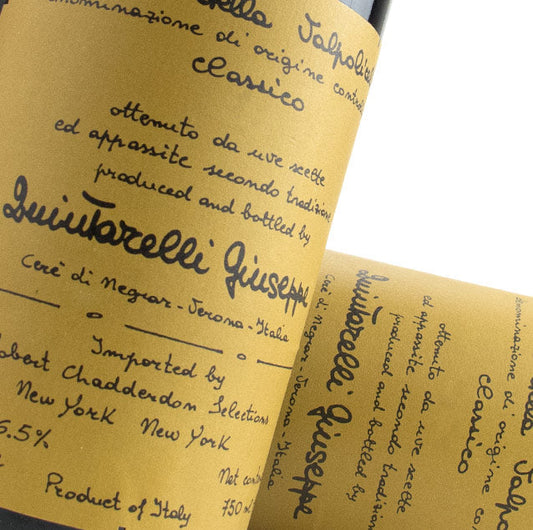 della Valpolicella
denominazione di origine controllata
classico
ottenuto da uve scelte
ed appassite secondo tradizione
produced and bottled by
Quintarelli Giuseppe
Cerè di Negrar - Verona - Italia
Imported by
Robert Chadderdon Selections
New York New York
6.5%
Net cont
Product of Italy 750 ml
della Valpo
denominazione di origine co
classico
ottenuto da uve scelte
ed appassite secondo tradizione
produced and bottled by
Quintarelli Giuseppe
Cerè di Negrar - Verona - Italia